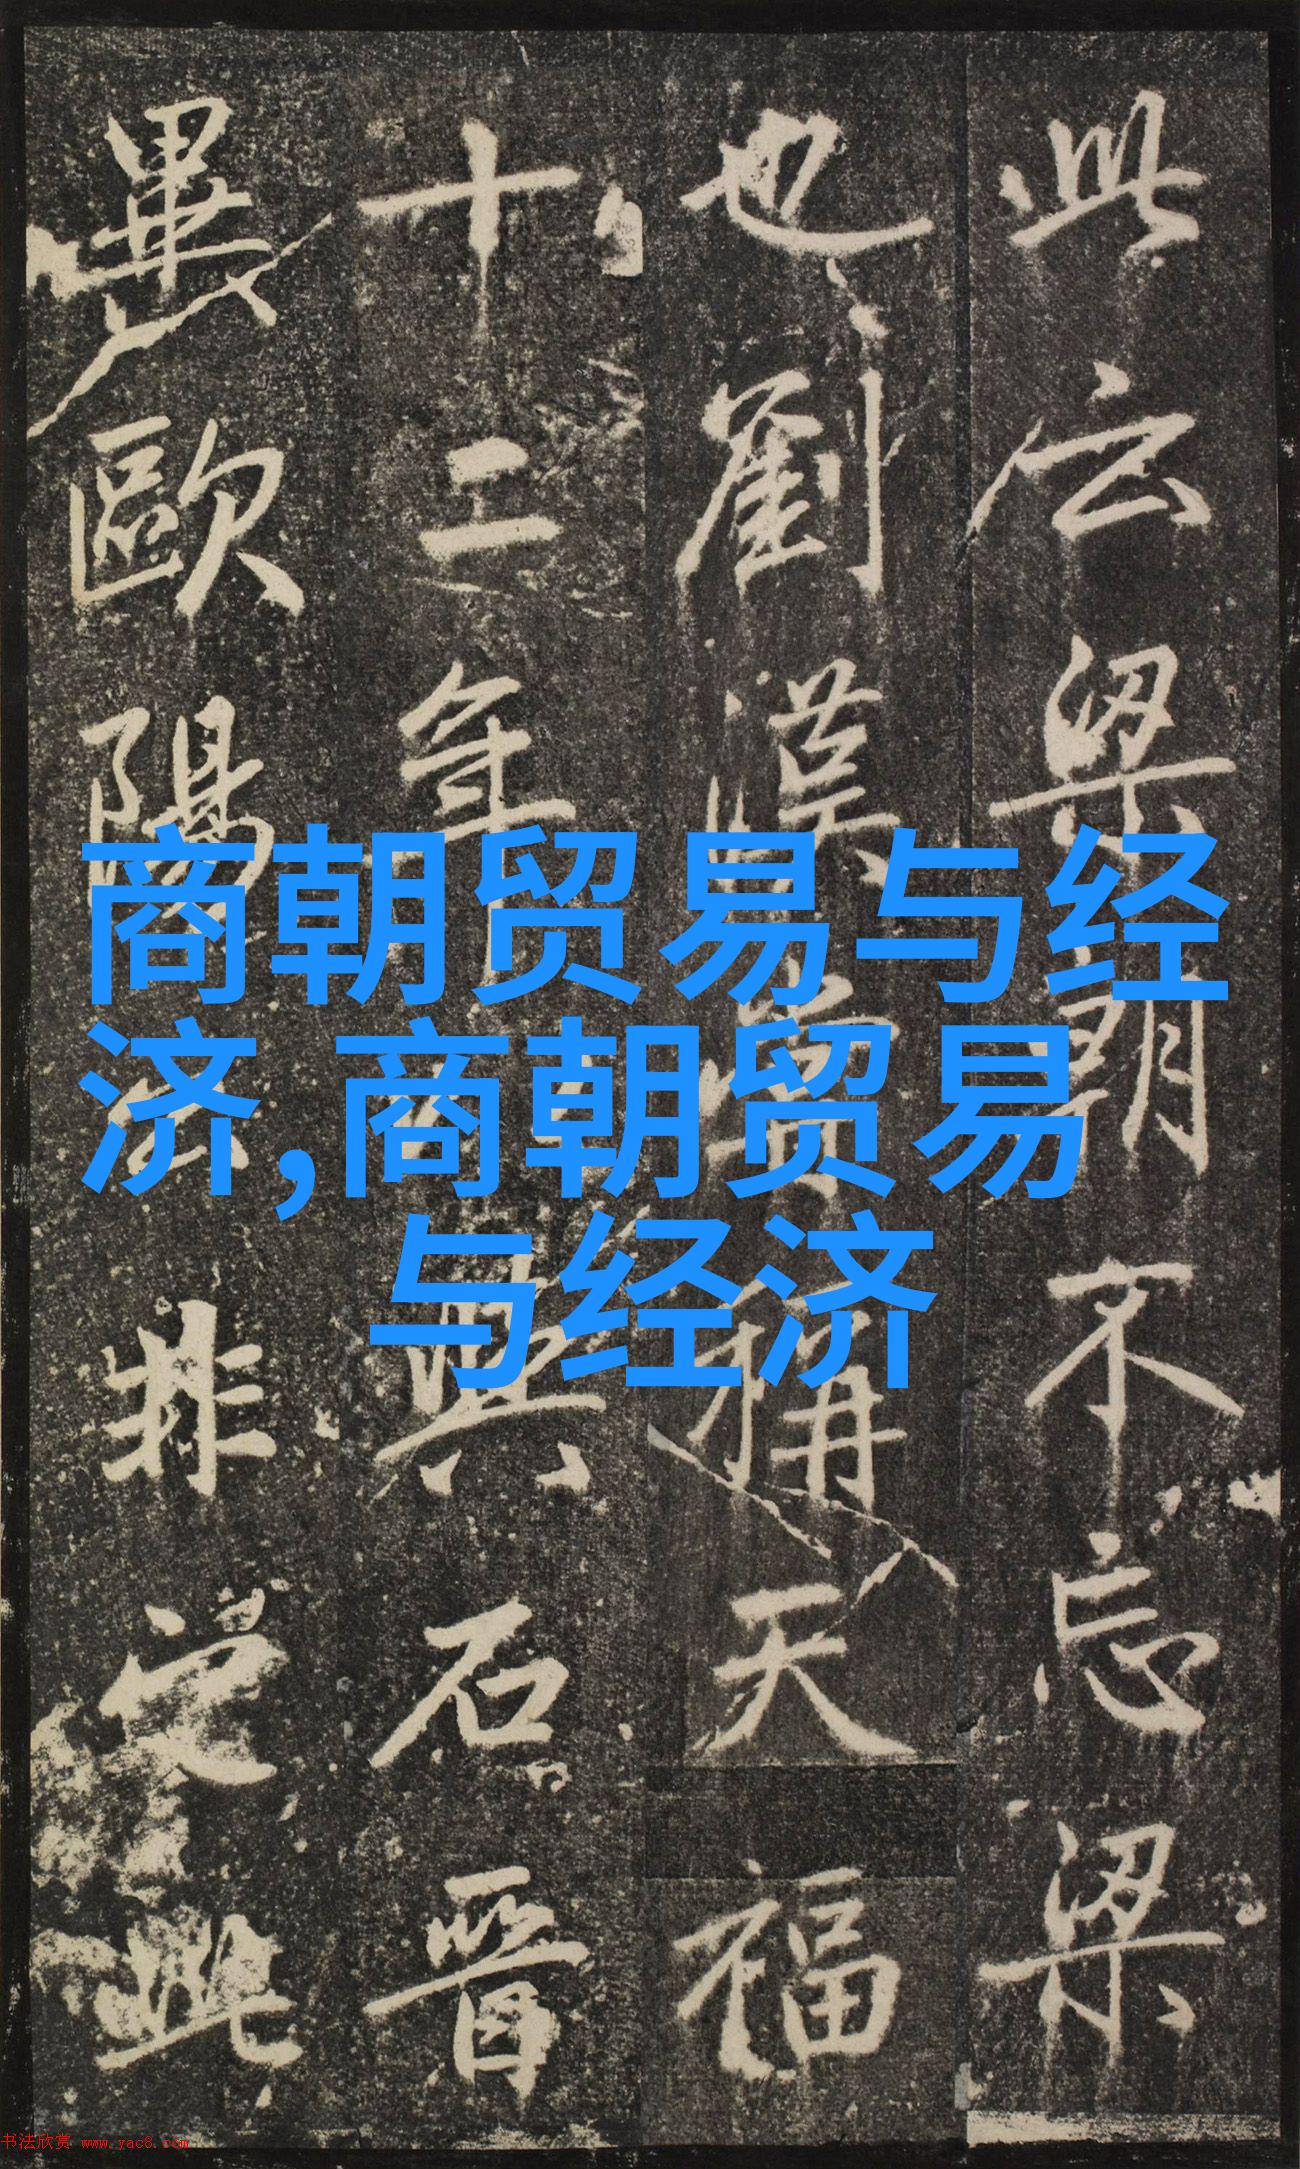 商朝贸易与经
济,商朝贸易
与经济
此云梁朝不忘梁
也劉漢嘗稱天福
十二年
與石晉
異歐陽公非之此
书法欣赏 www.yac8.com